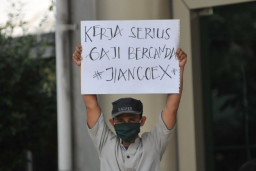 KERJA SERIUS
GAJI BERCANDA
*JIANCOEX*